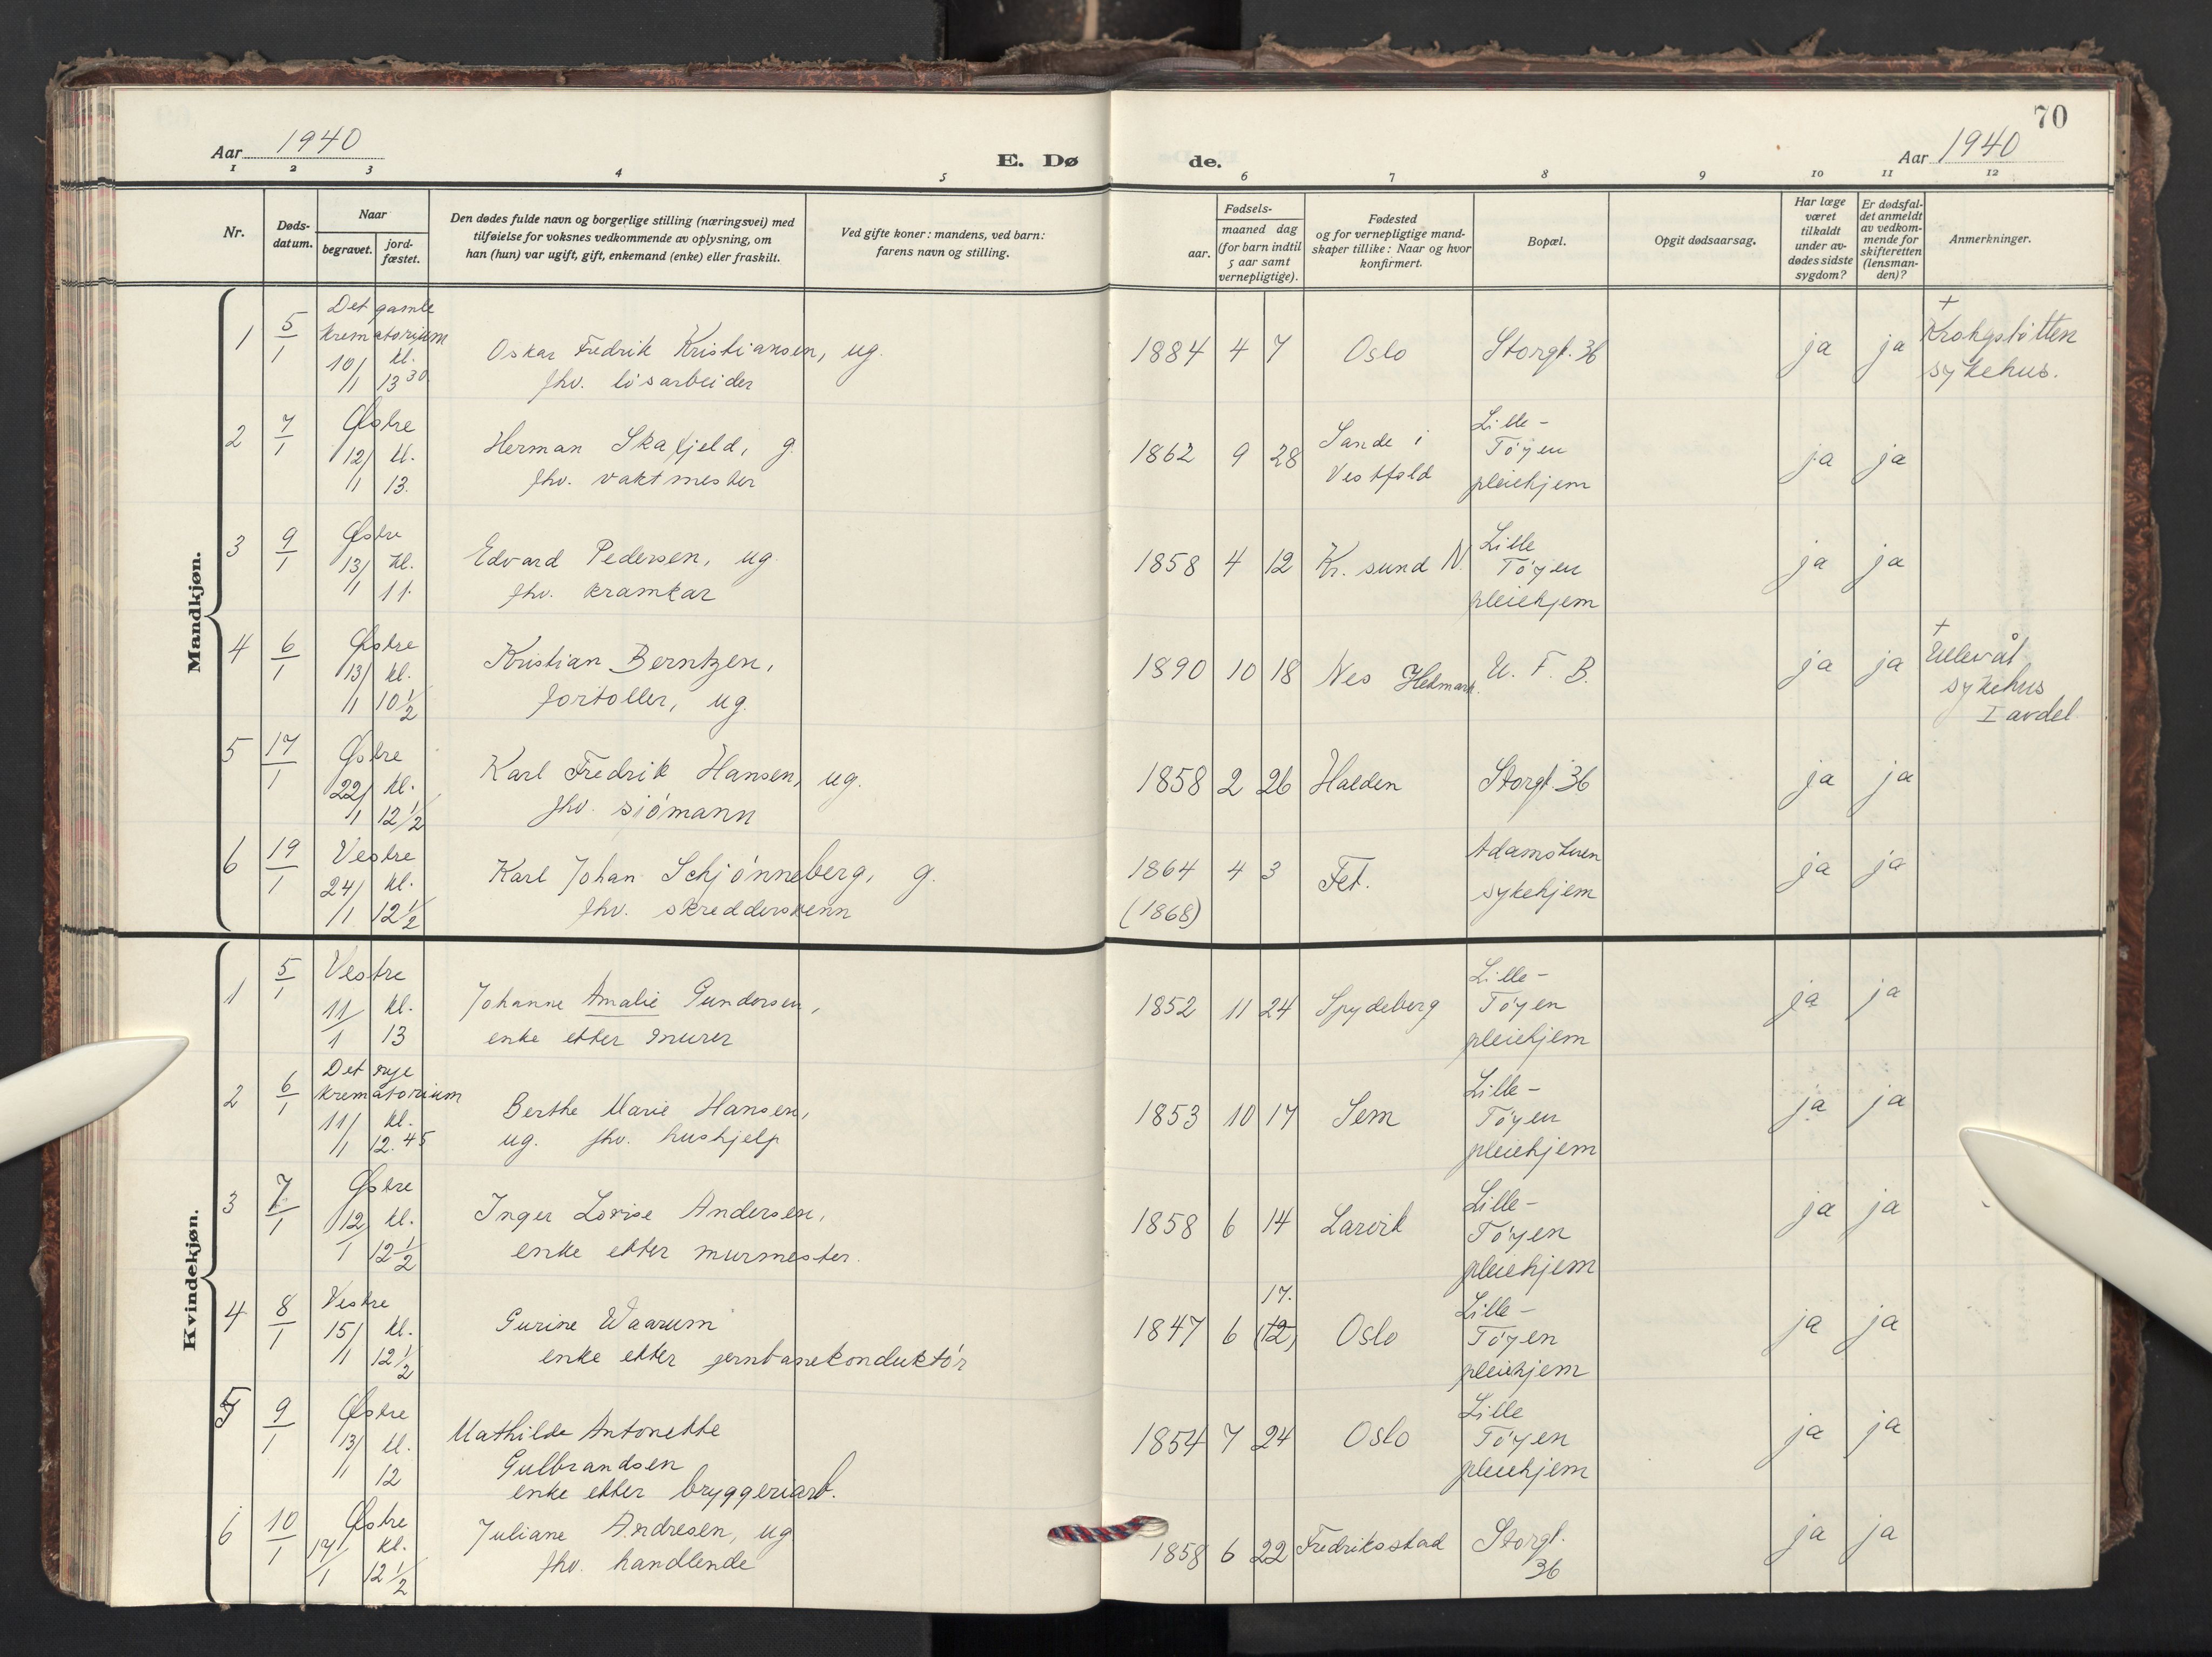 70
Aar 1940
E. Dø
de.
Aar 1940
1 2 3 4 5 6 7 8 9 10 11 12
Nr.
Døds-
datum.
Naar
begravet.
jord-
fæstet.
Den dødes fulde navn og borgerlige stilling (næringsvei) med
tilføielse for voksnes vedkommende av oplysning, om
han (hun) var ugift, gift, enkemand (enke) eller fraskilt.
Ved gifte koner: mandens, ved barn:
farens navn og stilling.
Fødsels-
aar.
maaned dag
(for barn indtil
5 aar samt
vernepligtige).
Fødested
og for vernepligtige mand-
skaper tillike: Naar og hvor
konfirmert.
Bopæl.
Opgit dødsaarsag.
Har læge
været
tilkaldt
under av-
dødes sidste
sygdom?
Er dødsfal-
det anmeldt
av vedkom-
mende for
skifteretten
(lensman-
den)?
Anmerkninger.
Mandkjøn.
1
5/1
Det gamle
krematorium
10/1 kl. 13 30
Oskar Fredrik Kristiansen, ug.
fhv. løsarbeider
1884 4 7 Oslo Storgt. 36 ja ja
+
Krohgstøtten
sykehus.
2
7/1
Østre
12/1 kl. 13.
Herman Skafjeld, g.
fhv. vaktmester
1862 9 28
Sande i
Vestfold
Lille-
Tøyen
pleiehjem
ja ja
3
9/1
Østre
13/1 kl. 11.
Edvard Pedersen, ug.
fhv. kramkar
1858 4 12 Kr. sund N.
Lille
Tøyen
pleiehjem
ja ja
4
6/1
Østre
13/1 kl. 10 1/2
Kristian Berntzen,
fortoller, ug.
1890 10 18 Nes Hedmark. U. F. B. ja ja
+
Ullevål
sykehus
I avdel.
5
17/1
Østre
22/1 kl. 12 1/2
Karl Fredrik Hansen, ug.
fhv. sjømann
1858 2 26 Halden Storgt. 36 ja ja
6
19/1
Vestre
24/1 kl. 12 1/2
Karl Johan Schjønneberg, g.
fhv. skreddersvenn
1864 4 3 Fet.
(1868)
Adamstuen
sykehjem
ja ja
Kvindekjøn.
1
5/1
Vestre
11/1 kl. 13
Johanne Amalie Gundersen,
enke etter murer
1852 11 24 Spydeberg
Lille-
Tøyen
pleiehjem
ja ja
2
6/1
Det nye
krematorium
11/1 kl. 12.45
Berthe Marie Hansen,
ug. fhv. hushjelp
1853 10 17 Sem
Lille-
Tøyen
pleiehjem
ja ja
3
7/1
Østre
12/1 kl. 12 1/2
Inger Lovise Andersen,
enke etter murmester.
1858 6 14 Larvik
Lille-
Tøyen
pleiehjem
ja ja
4
8/1
Vestre
15/1 kl. 12 1/2
Gurine Waarum
enke etter jernbanekonduktør
17.
1847 6 (12) Oslo
Lille-
Tøyen
pleiehjem
ja ja
5
9/1
Østre
13/1 kl. 12
Mathilde Antonette
Gulbrandsen
enke etter bryggeriarb.
1854 7 24 Oslo
Lille
Tøyen
pleiehjem
ja ja
6
10/1
Østre
17/1 kl. 12 1/2
Juliane Andresen, ug
fhv. handlende
1858 6 22 Fredriksstad
Storgt.
36
ja ja